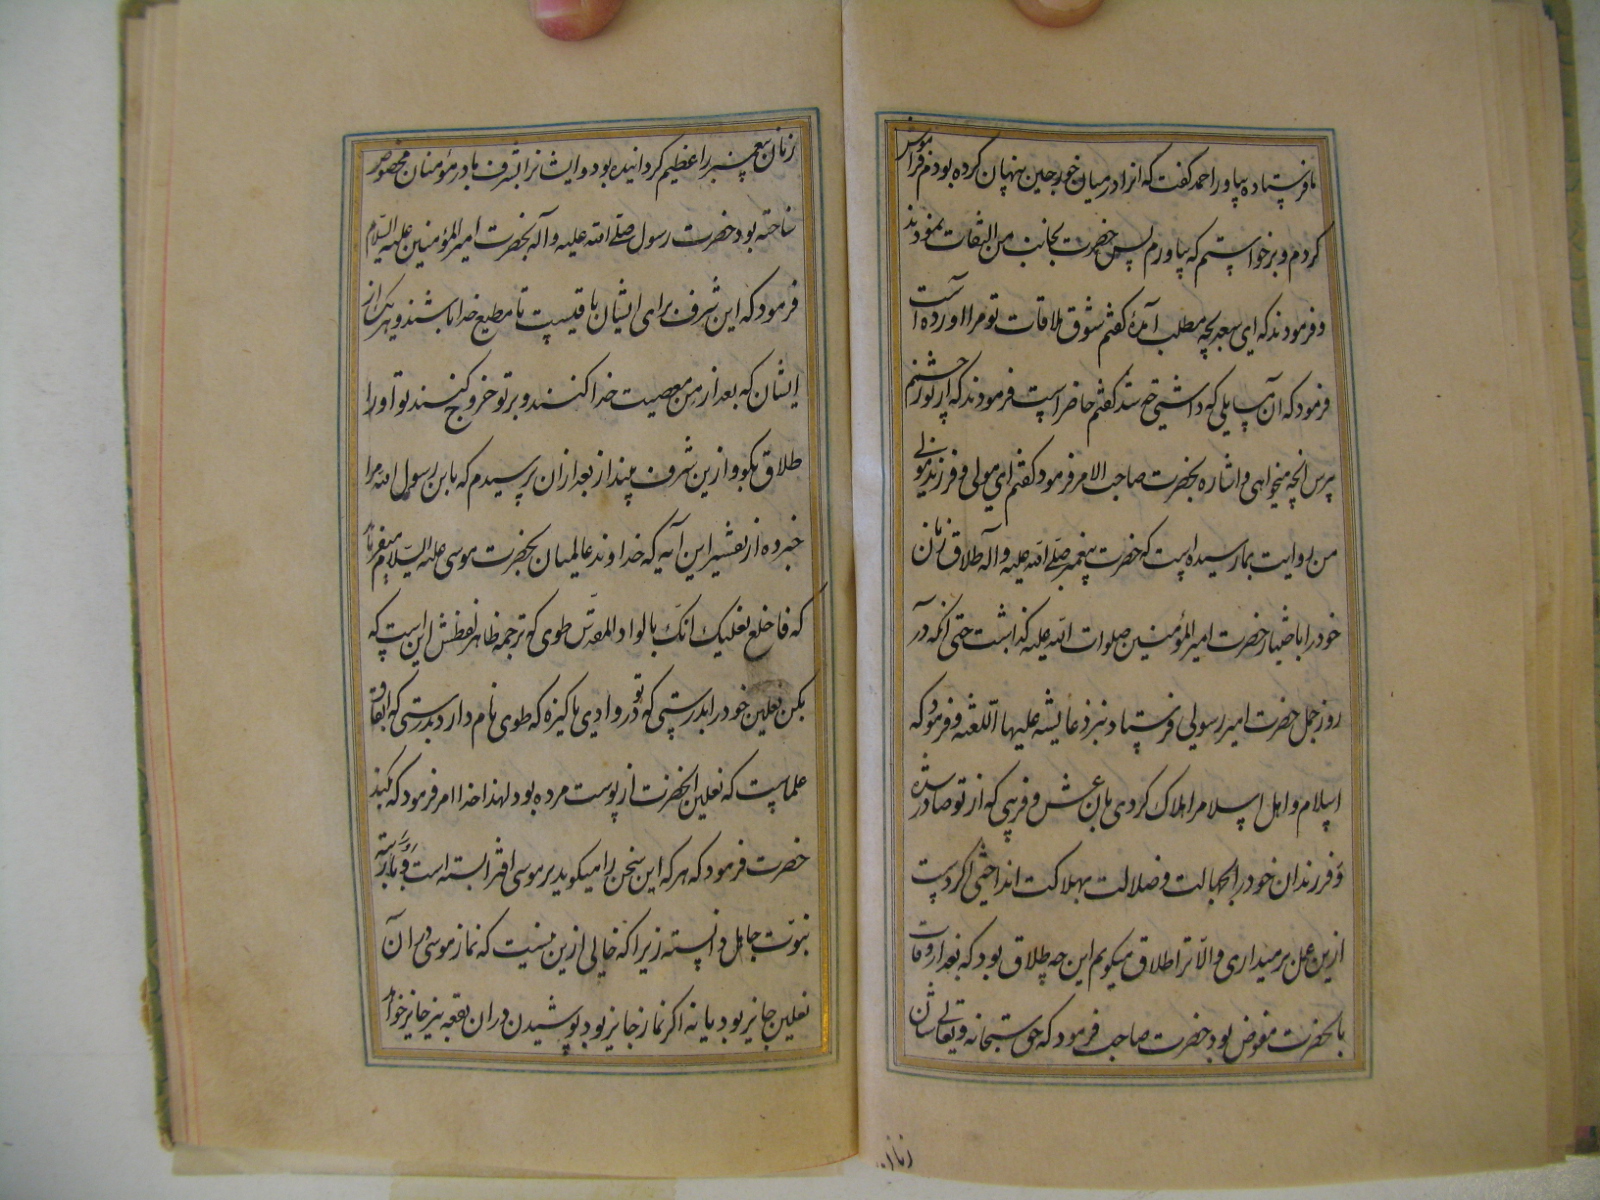 ما فرستاده بیاور احمد گفت که انرا در میان خورجین پنهان کرده بودم فراموش
کردم و برخواستم که بیاورم پس حضرت بجانب من التفات نمودند
و فرمودند که ای سعد بچه مطلب آمدهٔ گفتم شوق ملاقات تو مرا اورده است
فرمود که آن مسایلی که داشتی چه شد گفتم حاضر است فرمودند که از نور چشمم
پرس انچه میخواهی و اشاره بحضرت صاحب الامر فرمود گفتم ای مولی و فرزند مولی
من روایت بما رسیده است که حضرت پیغمبر صلی الله علیه و آله طلاق زنان
خود را باختیار حضرت امیر المؤمنین صلوات الله علیه گذاشت حتی انکه در
روز جمل حضرت امیر رسولی فرستاد نبزد عایشه علیها اللعنه و فرمود که
اسلام و اهل اسلام را هلاک کردی بان غش و فریبی که از تو صادر شد
و فرزندان خود را بجهالت و ضلالت بهلاکت انداختی اگر دست
ازین عمل برمیداری والا ترا طلاق میگویم این چه طلاق بود که بعد از وفات
بانحضرت مفوض بود حضرت صاحب فرمود که حق سبحانه و تعالی شان
زنان
زنان پیغمبر را عظیم گردانیده بود و ایشانرا بشرف مادر مؤمنان مخصوص
ساخته بود حضرت رسول صلی الله علیه و آله بحضرت امیر المؤمنین علیه السلام
فرمود که این شرف برای ایشان باقیست تا مطیع خدا باشند و هر یک از
ایشان که بعد از من معصیت خدا کنند و بر تو خروج کنند تو او را
طلاق بگو و ازین شرف بینداز بعد ازان پرسیدم که یابن رسول الله مرا
خبر ده از تفسیر این آیه که خداوند عالمیان بحضرت موسی علیه السلام میفرماید
که فاخلع نعلیک انک بالواد المقدس طوی که ترجمه ظاهر لفظش این است که
بکن نعلین خود را بدرستی که تو در وادی پاکیزه که طوی نام دارد بدرستی که اتفاق
علماست که نعلین انحضرت از پوست مرده بود لهذا خدا امر فرمود که بکند
حضرت فرمود که هر که این سخن را میگوید بر موسی افترا بسته است و او را با رتبه
نبوت جاهل دانسته زیرا که خالی ازین نیست که نماز موسی دران
نعلین جایز بود یا نه اگر نماز جایز بود پوشیدن دران بقعه نیز جایز خواهد